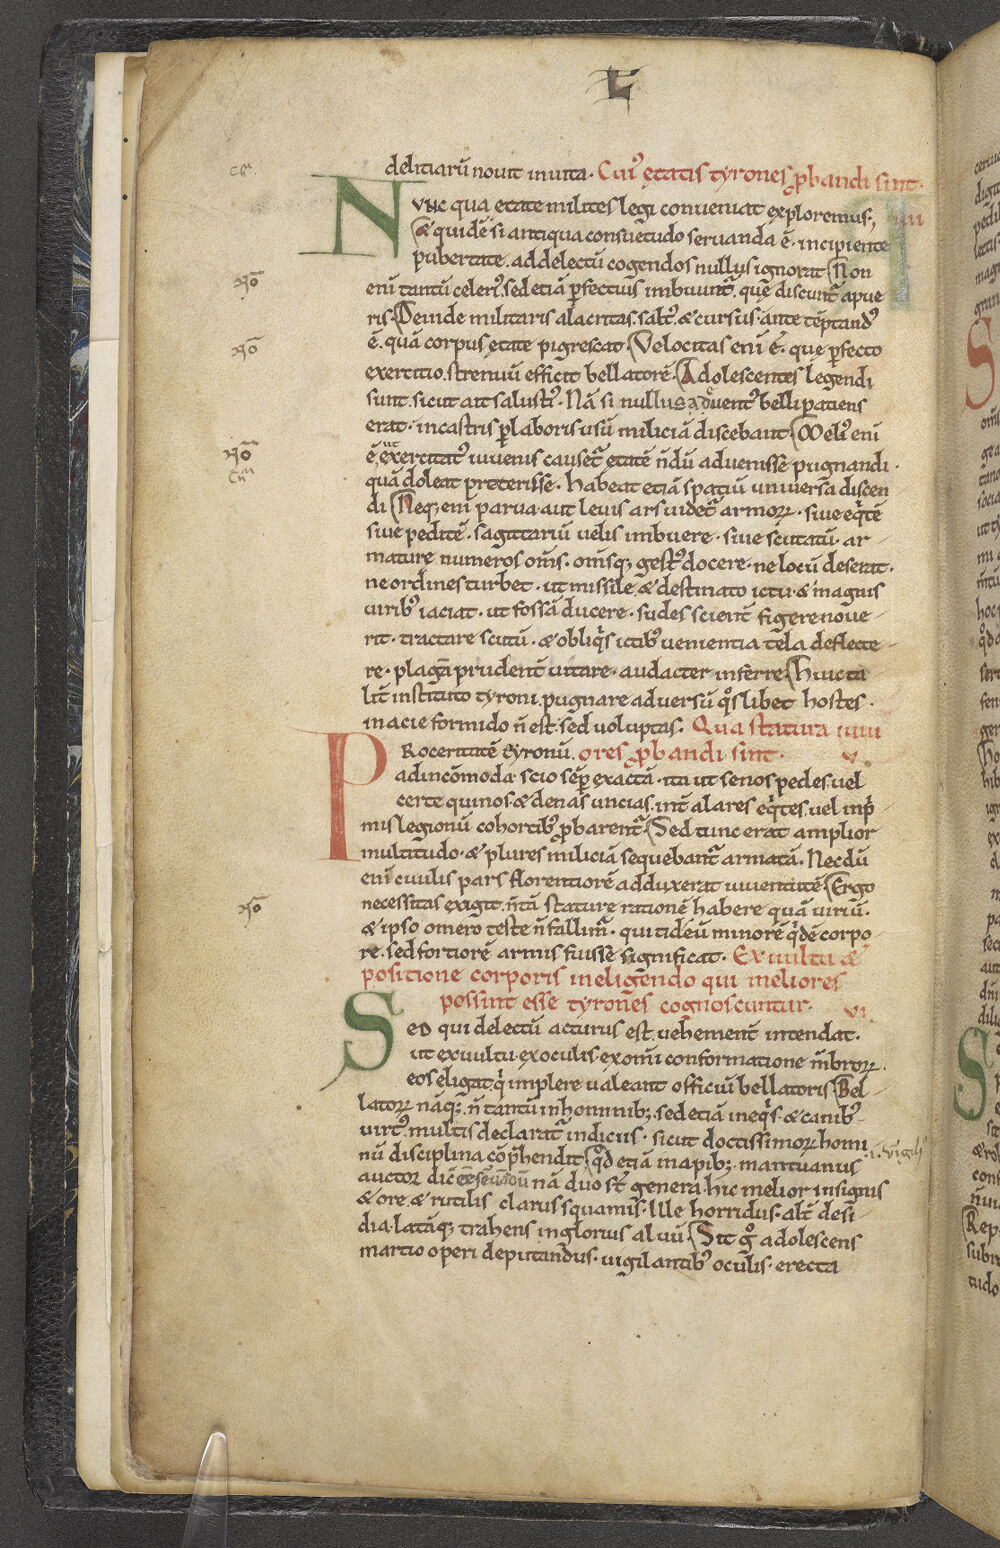 L
delitiarū nouit in uita. Cui᷒ ętatis tyrones ꝓbandi sint.
Nvnc qua ętate milites legi conueniat exploremus; iiii
& quidē si antiqua consuetudo seruanda ē. incipiente
pubertate. ad delectū cogendos nullus ignorat Non
eni tantū celeri᷒. sed etiā ꝑfectius imbuunt̄. quę discunt̄ a pue
ris. Deinde militaris alacritas. salt᷒. & cursus. ante tēptand᷒
ē. quā corpus ętate pigrescat. Velocitas eni ē. que ꝑfecto
exercitio. strenuū efficit bellatorē. Adolescentes legendi
sunt. sicut ait salusti᷒. Nā si nullus aduent᷒ belli patiens
erat. in castris ꝑ laboris usū miliciā discebant Meli᷒ eni
ē ut exercitat᷒ iuuenis causet̄ ętatē n̄dū aduenisse pugnandi.
quā doleat pręterisse. habeat etiā spatiū uniuersa discen
di Neq; eni parua aut leuis ars uidet̄ armoꝝ. siue eq̇tē
siue peditē. sagittariū uelis imbuere. siue scutatū. ar
mature numeros om̄s. om̄sq; gest᷒ docere. ne locū deserat.
ne ordines turbet. ut missile & destinato ictu & magnis
uirib᷒ iaciat. ut fossā ducere. sudes scient̄ figere noue
rit. tractare scutū. & obliq̇s ictib᷒ uenientia tela deflecte
re. plagā prudent̄ uitare. audacter inferre. Huic ta
lit̄ instituto tyroni. pugnare aduersū q̊slibet hostes.
in acie formido n̄ est. sed uoluptas. Qua statura iuni
Proceritatē tyronū. ores ꝓbandi sint. v.
ad incōmoda scio sēꝑ exactā. ita ut senos pedes. uel
certe quinos & denas uncias. int̄ alares eq̇tes. uel in p̄
mis legionū cohortib᷒ ꝓbarent̄. Sed tunc erat amplior
multitudo. & plures miliciā sequebant̄ armatā. Necdū
eni ciuilis pars florentiorē adduxerat iuuentutē. Ergo
necessitas exigit. n̄ tā stature rationē habere quā viriū.
& ipso omero teste n̄ fallim᷒. qui tideū minorē q̇dē corpo
re. sed fortiorē armis fuisse significat. Ex uultu &
positione corporis in eligendo qui meliores
possint esse tyrones cognoscuntur. vi.
Sed qui delectū acturus est. uehement̄ intendat.
ut ex uultu. ex oculis. ex om̄i conformatione m̄broꝝ.
eos eligat. q̇ implere ualeant officiū bellatoris Bel
latoꝝ nāq; n̄ tantū in hominib;. sed etiā in eq̇s. & canib᷒
uirt᷒. multis declarat̄ indiciis. sicut doctissimoꝝ homi
nū disciplina cōp̄hendit; qđ etiā in apib;. mantuanus .i. virgili᷒
auctor dic̄ eē seruandū nā duo st᷒ genera. hic melior insignis
& ore & rutilis clarus squamis. Ille horridus. alt̄ desi
dia. latāq; trahens inglorius aluū. Sit g̊ adolescens
martio operi deputandus. uigilantib᷒ oculis. erecta